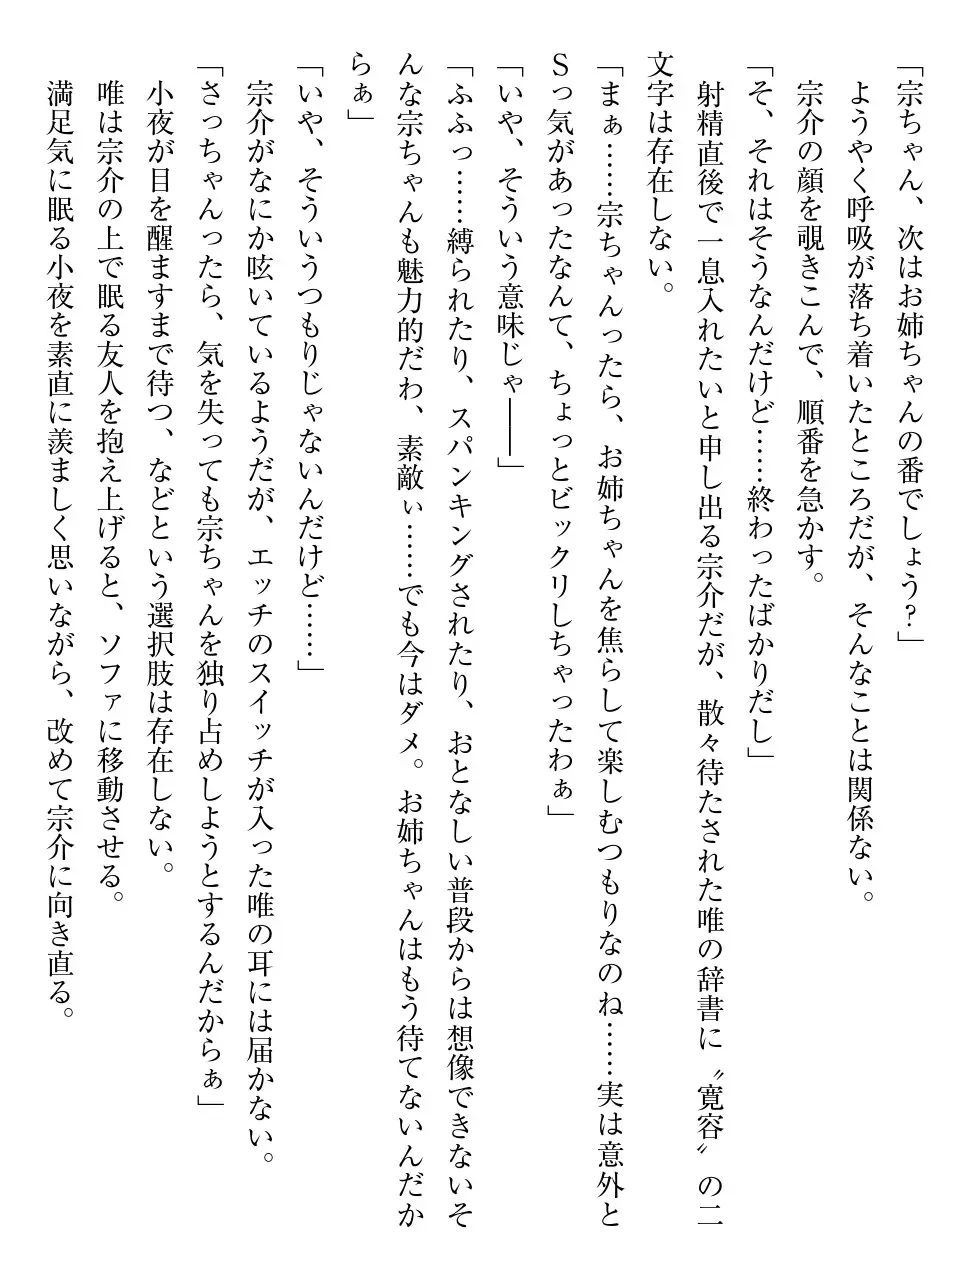 「宗ちゃん、次はお姉ちゃんの番でしょう?」
ようやく呼吸が落ち着いたところだが、そんなことは関係ない。
宗介の顔を覗きこんで、順番を急かす。
「そ、それはそうなんだけど……終わったばかりだし」
射精直後で一息入れたいと申し出る宗介だが、散々待たされた唯の辞書に〝寛容〟の二
文字は存在しない。
「まぁ……宗ちゃんったら、お姉ちゃんを焦らして楽しむつもりなのね……実は意外と
Ｓっ気があったなんて、ちょっとビックリしちゃったわぁ」
「いや、そういう意味じゃ――」
「ふふっ……縛られたり、スパンキングされたり、おとなしい普段からは想像できないそ
んな宗ちゃんも魅力的だわ、素敵ぃ……でも今はダメ。お姉ちゃんはもう待てないんだか
らぁ」
「いや、そういうつもりじゃないんだけど……」
宗介がなにか呟いているようだが、エッチのスイッチが入った唯の耳には届かない。
「さっちゃんったら、気を失っても宗ちゃんを独り占めしようとするんだからぁ」
小夜が目を醒ますまで待つ、などという選択肢は存在しない。
唯は宗介の上で眠る友人を抱え上げると、ソファに移動させる。
満足気に眠る小夜を素直に羨ましく思いながら、改めて宗介に向き直る。